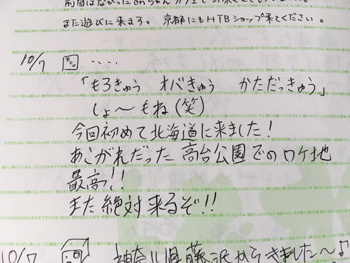 また遊びに来ます。京都にもHTBショップ来てください。
10/7 ‥‥
「もろきゅう オバきゅう かただっきゅう」
しょ〜もね(笑)
今回初めて北海道に来ました!
あこがれだった高台公園でのロケ地
最高!!
また絶対来るぞ!!
10/7 神奈川県藤沢からきました〜♪